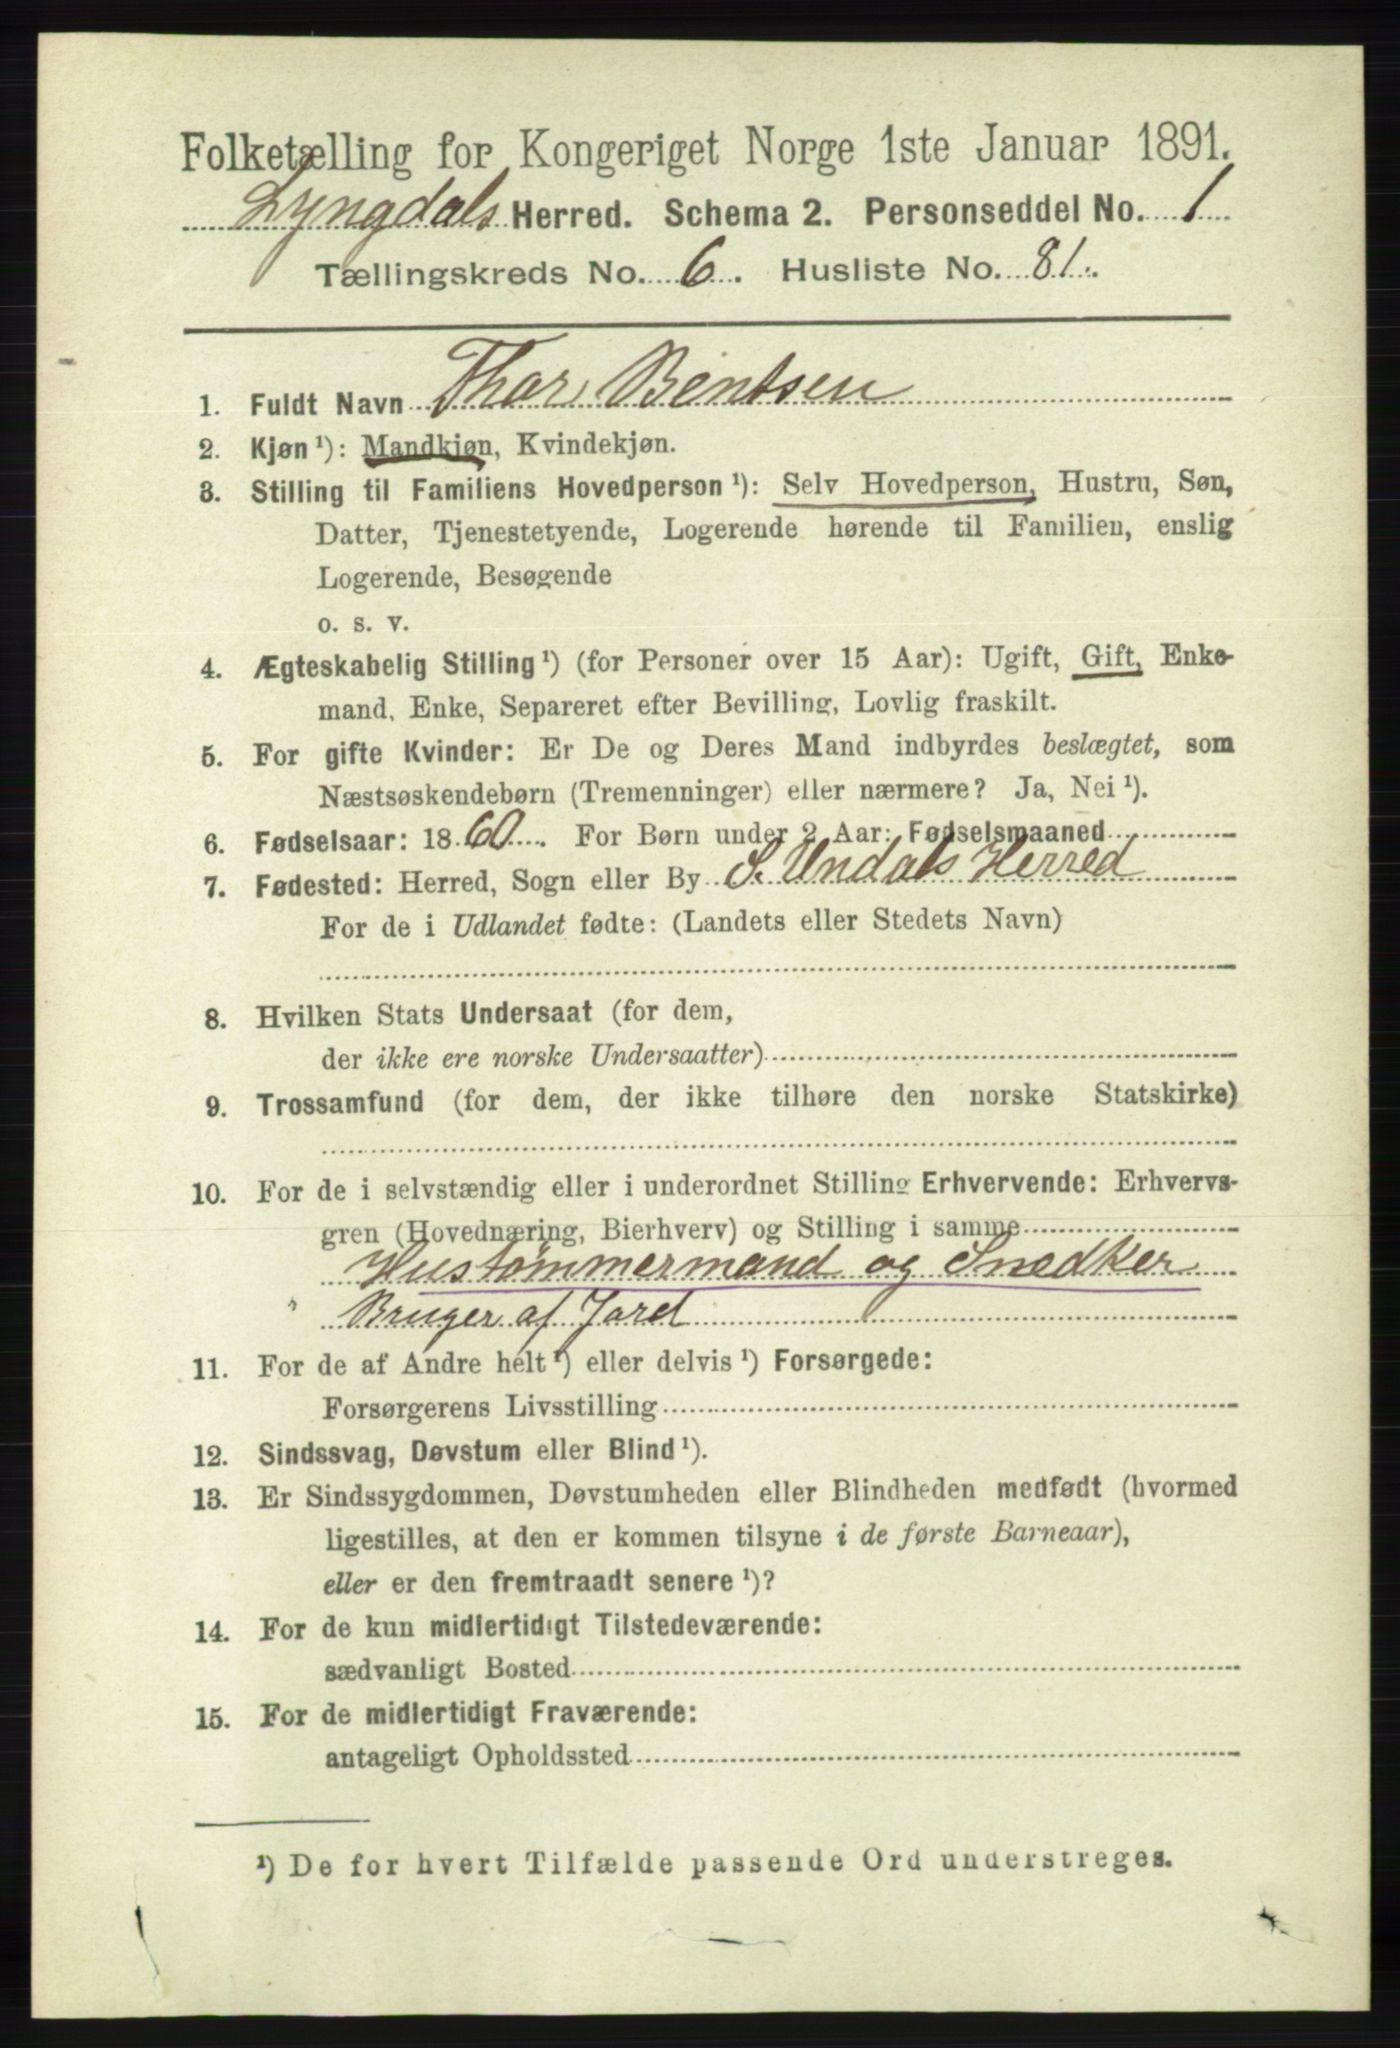 Folketælling for Kongeriget Norge 1ste Januar 1891.
Lyngdals Herred. Schema 2. Personseddel No. 1
Tællingskreds No. 6. Husliste No. 81.
1. Fuldt Navn Thor Bentsen
2. Kjøn ¹): Mandkjøn, Kvindekjøn.
3. Stilling til Familiens Hovedperson ¹): Selv Hovedperson, Hustru, Søn,
Datter, Tjenestetyende, Logerende hørende til Familien, enslig
Logerende, Besøgende
o. s. v.
4. Ægteskabelig Stilling ¹) (for Personer over 15 Aar): Ugift, Gift, Enke-
mand, Enke, Separeret efter Bevilling, Lovlig fraskilt.
5. For gifte Kvinder: Er De og Deres Mand indbyrdes beslægtet, som
Næstsøskendebørn (Tremenninger) eller nærmere? Ja, Nei ¹).
6. Fødselsaar: 1860. For Børn under 2 Aar: Fødselsmaaned
7. Fødested: Herred, Sogn eller By S. Undals Herred
For de i Udlandet fødte: (Landets eller Stedets Navn)
8. Hvilken Stats Undersaat (for dem,
der ikke ere norske Undersaatter)
9. Trossamfund (for dem, der ikke tilhøre den norske Statskirke)
10. For de i selvstændig eller i underordnet Stilling Erhvervende: Erhvervs-
gren (Hovednæring, Bierhverv) og Stilling i samme
Hustømmermand og Snedker
" Bruger af Jord
11. For de af Andre helt ¹) eller delvis ¹) Forsørgede:
Forsørgerens Livsstilling
12. Sindssvag, Døvstum eller Blind ¹).
13. Er Sindssygdommen, Døvstumheden eller Blindheden medfødt (hvormed
ligestilles, at den er kommen tilsyne i de første Barneaar),
eller er den fremtraadt senere ¹)?
14. For de kun midlertidigt Tilstedeværende:
sædvanligt Bosted
15. For de midlertidigt Fraværende:
antageligt Opholdssted
¹) De for hvert Tilfælde passende Ord understreges.